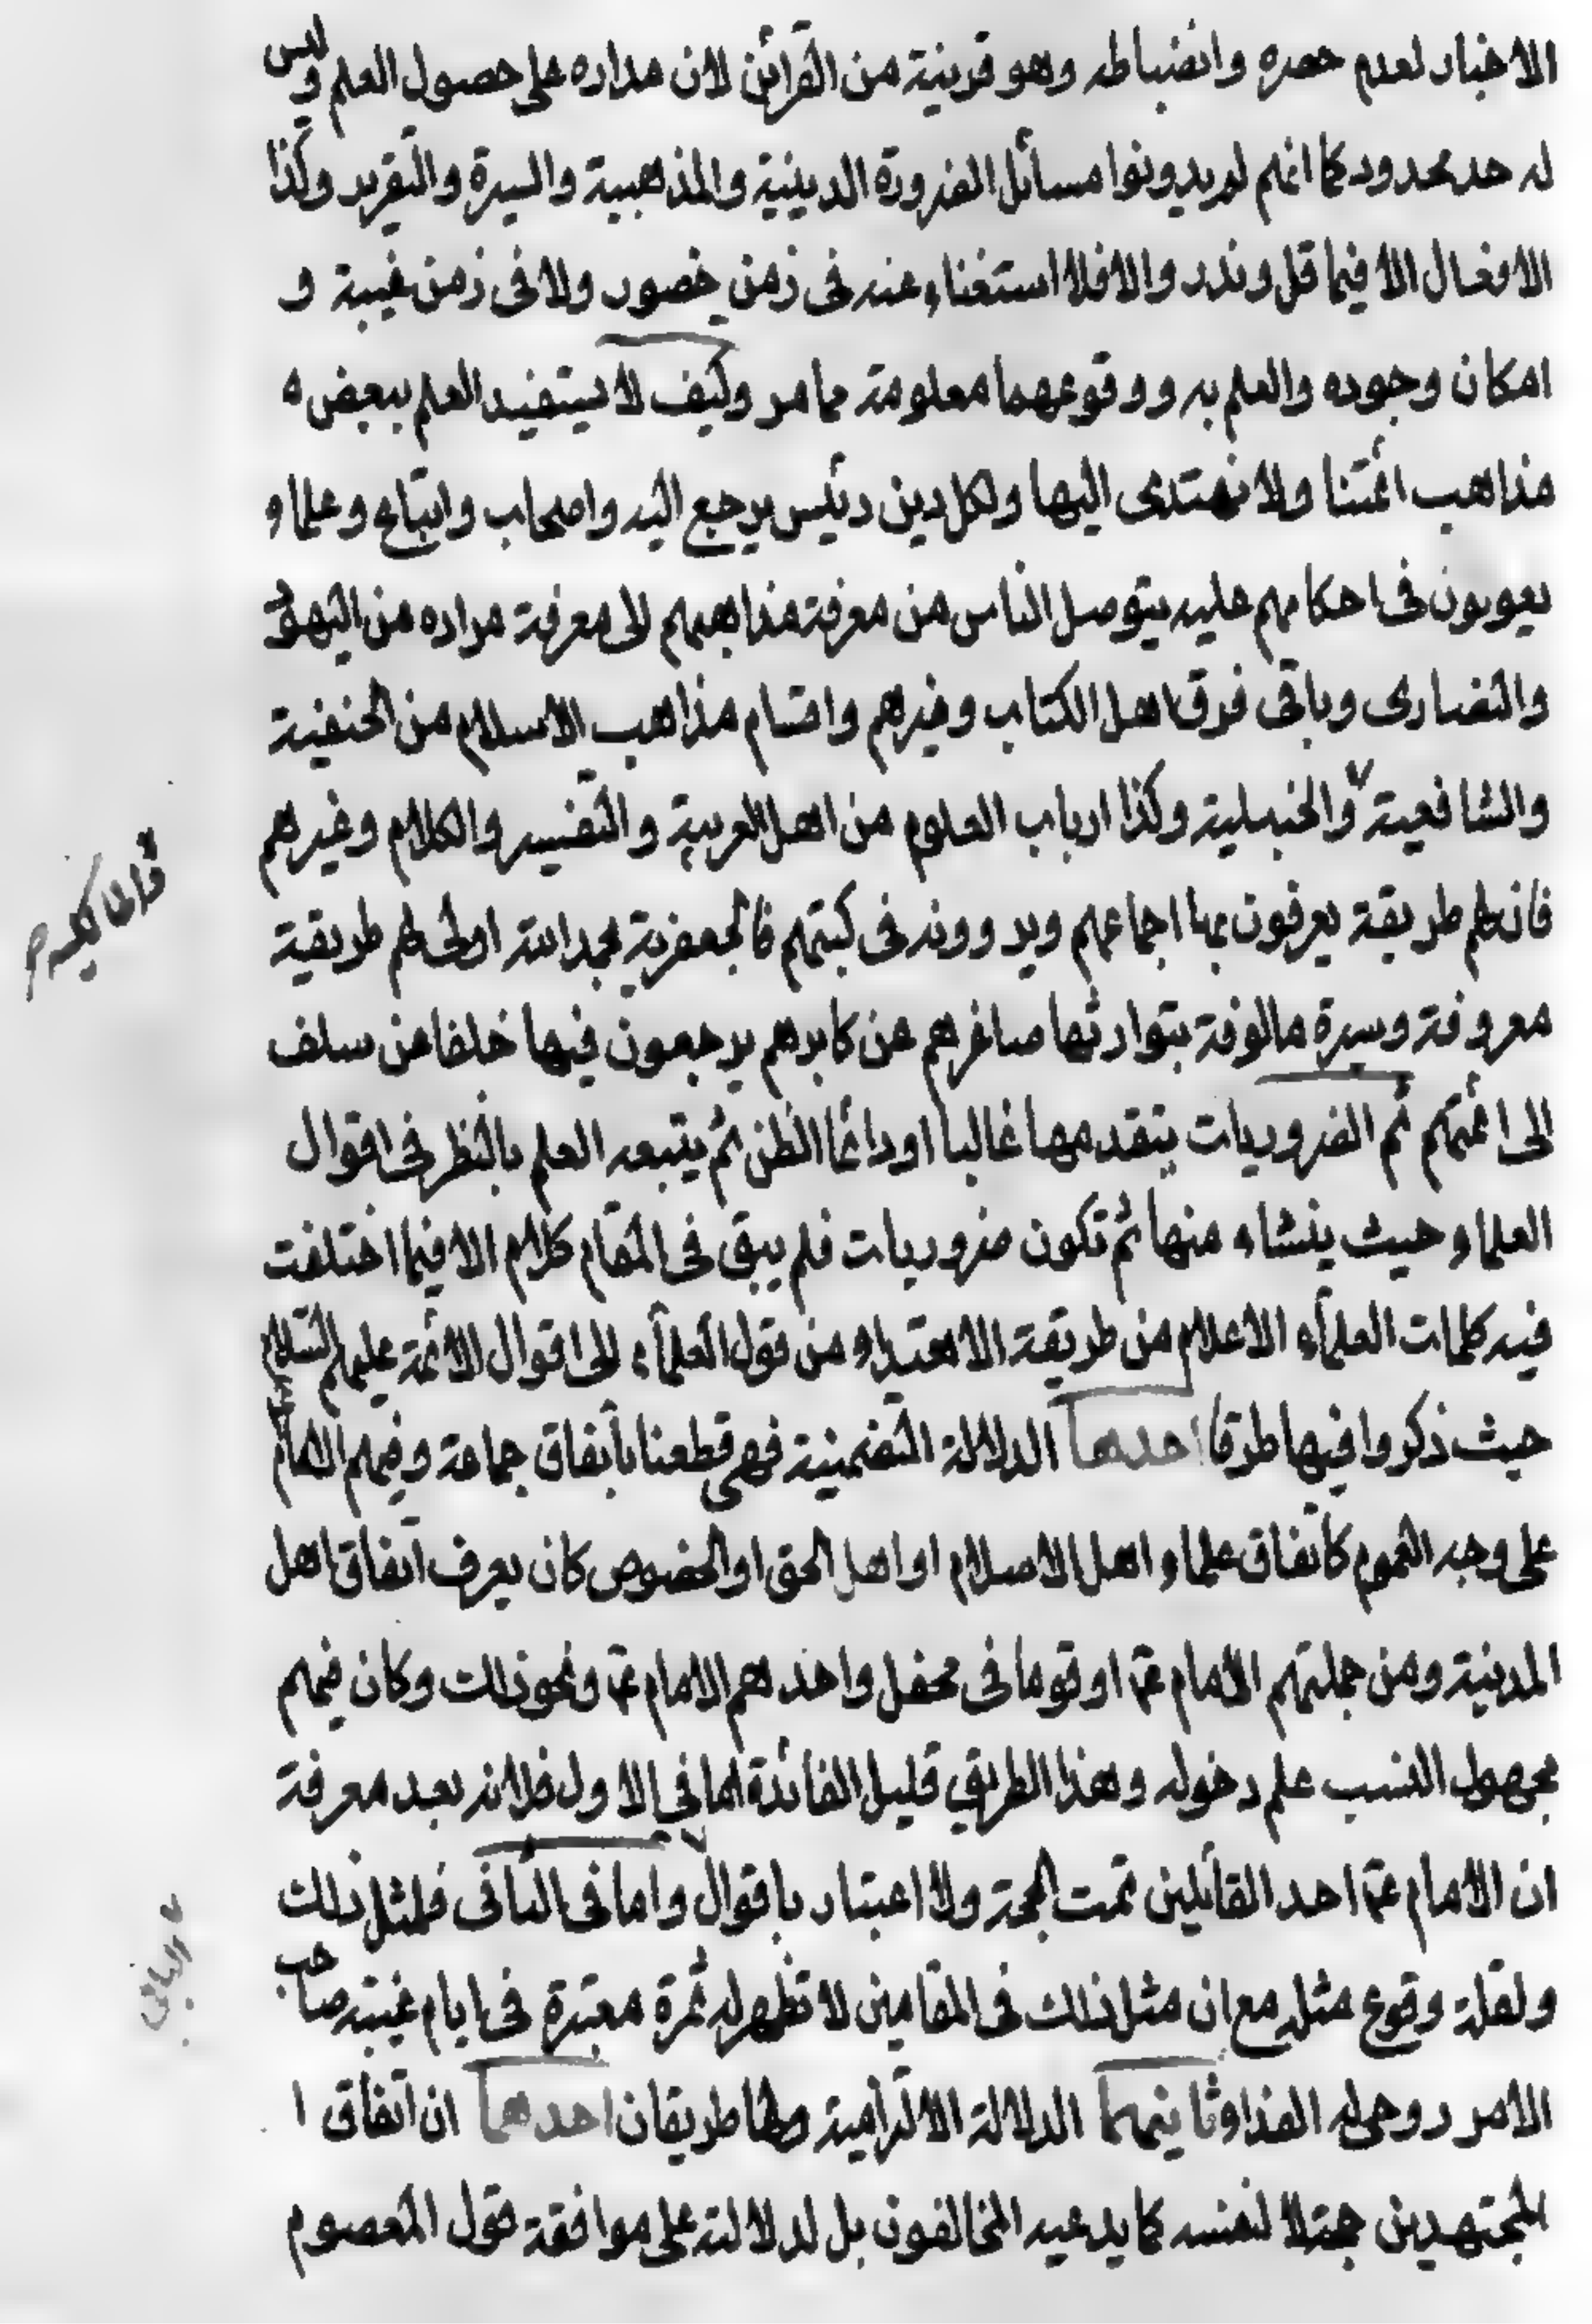 الاخبار لعدم حصره وانضباطه وهو قرينية من القرائن لان مداره على حصول العلم وليس
له حد محدود كما انهم لم يدونوا مسائل الضرورة الدينية والمذهبية والسيرة والتقرير وكذا
الافعال الا فيما قل وندر والا فلا استغناء عنه فى زمن حضور ولا فى زمن غيبة و
امكان وجوده والعلم به ووقوعهما معلومة مما مر وكيف لا يستفيد العلم ببعض
مذاهب ائمتنا ولا نهتدى اليها ولكل دين رئيس يرجع اليه واصحاب واتباع وعلماء
يعولون فى احكامهم عليه يتوصل الناس من معرفة مذاهبهم الى معرفة مراده من اليهود
والنصارى وباقى فرق اهل الكتاب وغيرهم واقسام مذاهب الاسلام من الحنفية
والشافعية والحنبلية وكذا ارباب العلوم من اهل العربية والتفسير والكلام وغيرهم
والمالكية
فان لهم طريقة يعرفون بها اجماعهم ويروونه فى كتبهم فالجعفرية بحمد الله اولى لهم طريقية
معروفة وسيرة مالوفة يتوارثها صاغرهم عن كابرهم يرجعون فيها خلفا عن سلف
الى ائمتهم ثم الضروريات يتقدمها غالبا او دائما الظن ثم يتبعه العلم بالنظر فى اقوال
العلماء حيث ينشاء منها ثم تكون ضروريات فلم يبق فى المقام كلام الا فيما اختلفت
فيه كلمات العلماء الاعلام من طريقة الاهتداء من قول العلماء الى اقوال الائمة عليهم السلام
حيث ذكروا فيها طرقا احدها الدلالة التضمنية فهى قطعنا باتفاق جماعة وفيهم الامام
على وجه العموم كاتفاق علماء اهل الاسلام او اهل الحق او الخصوص كان يعرف اتفاق اهل
المدينية ومن جملتهم الامام عم او قوما فى محفل واحدهم الامام عم ونحو ذلك وكان فيهم
مجهول النسب علم دخوله وهذا الطريق قليل الفائدة اما فى الاول فلانه بعد معرفة
ان الامام عم احد القائلين تمت الحجة ولا اعتبار باقوال واما فى الثانى فلمثل ذلك
الباقى
ولقلة وقوع مثله مع ان مثل ذلك فى المقامين لا تظهر له ثمرة معتبرة فى ايام غيبته صاحب
الامر روحى له الفدا وثانيهما الدلالة الالتزامية ولها طريقان احدهما ان اتفاق ا
لمجتهدين حجة لا لنفسه كما يدعيه المخالفون بل لدلالته على موافقة قول المعصوم